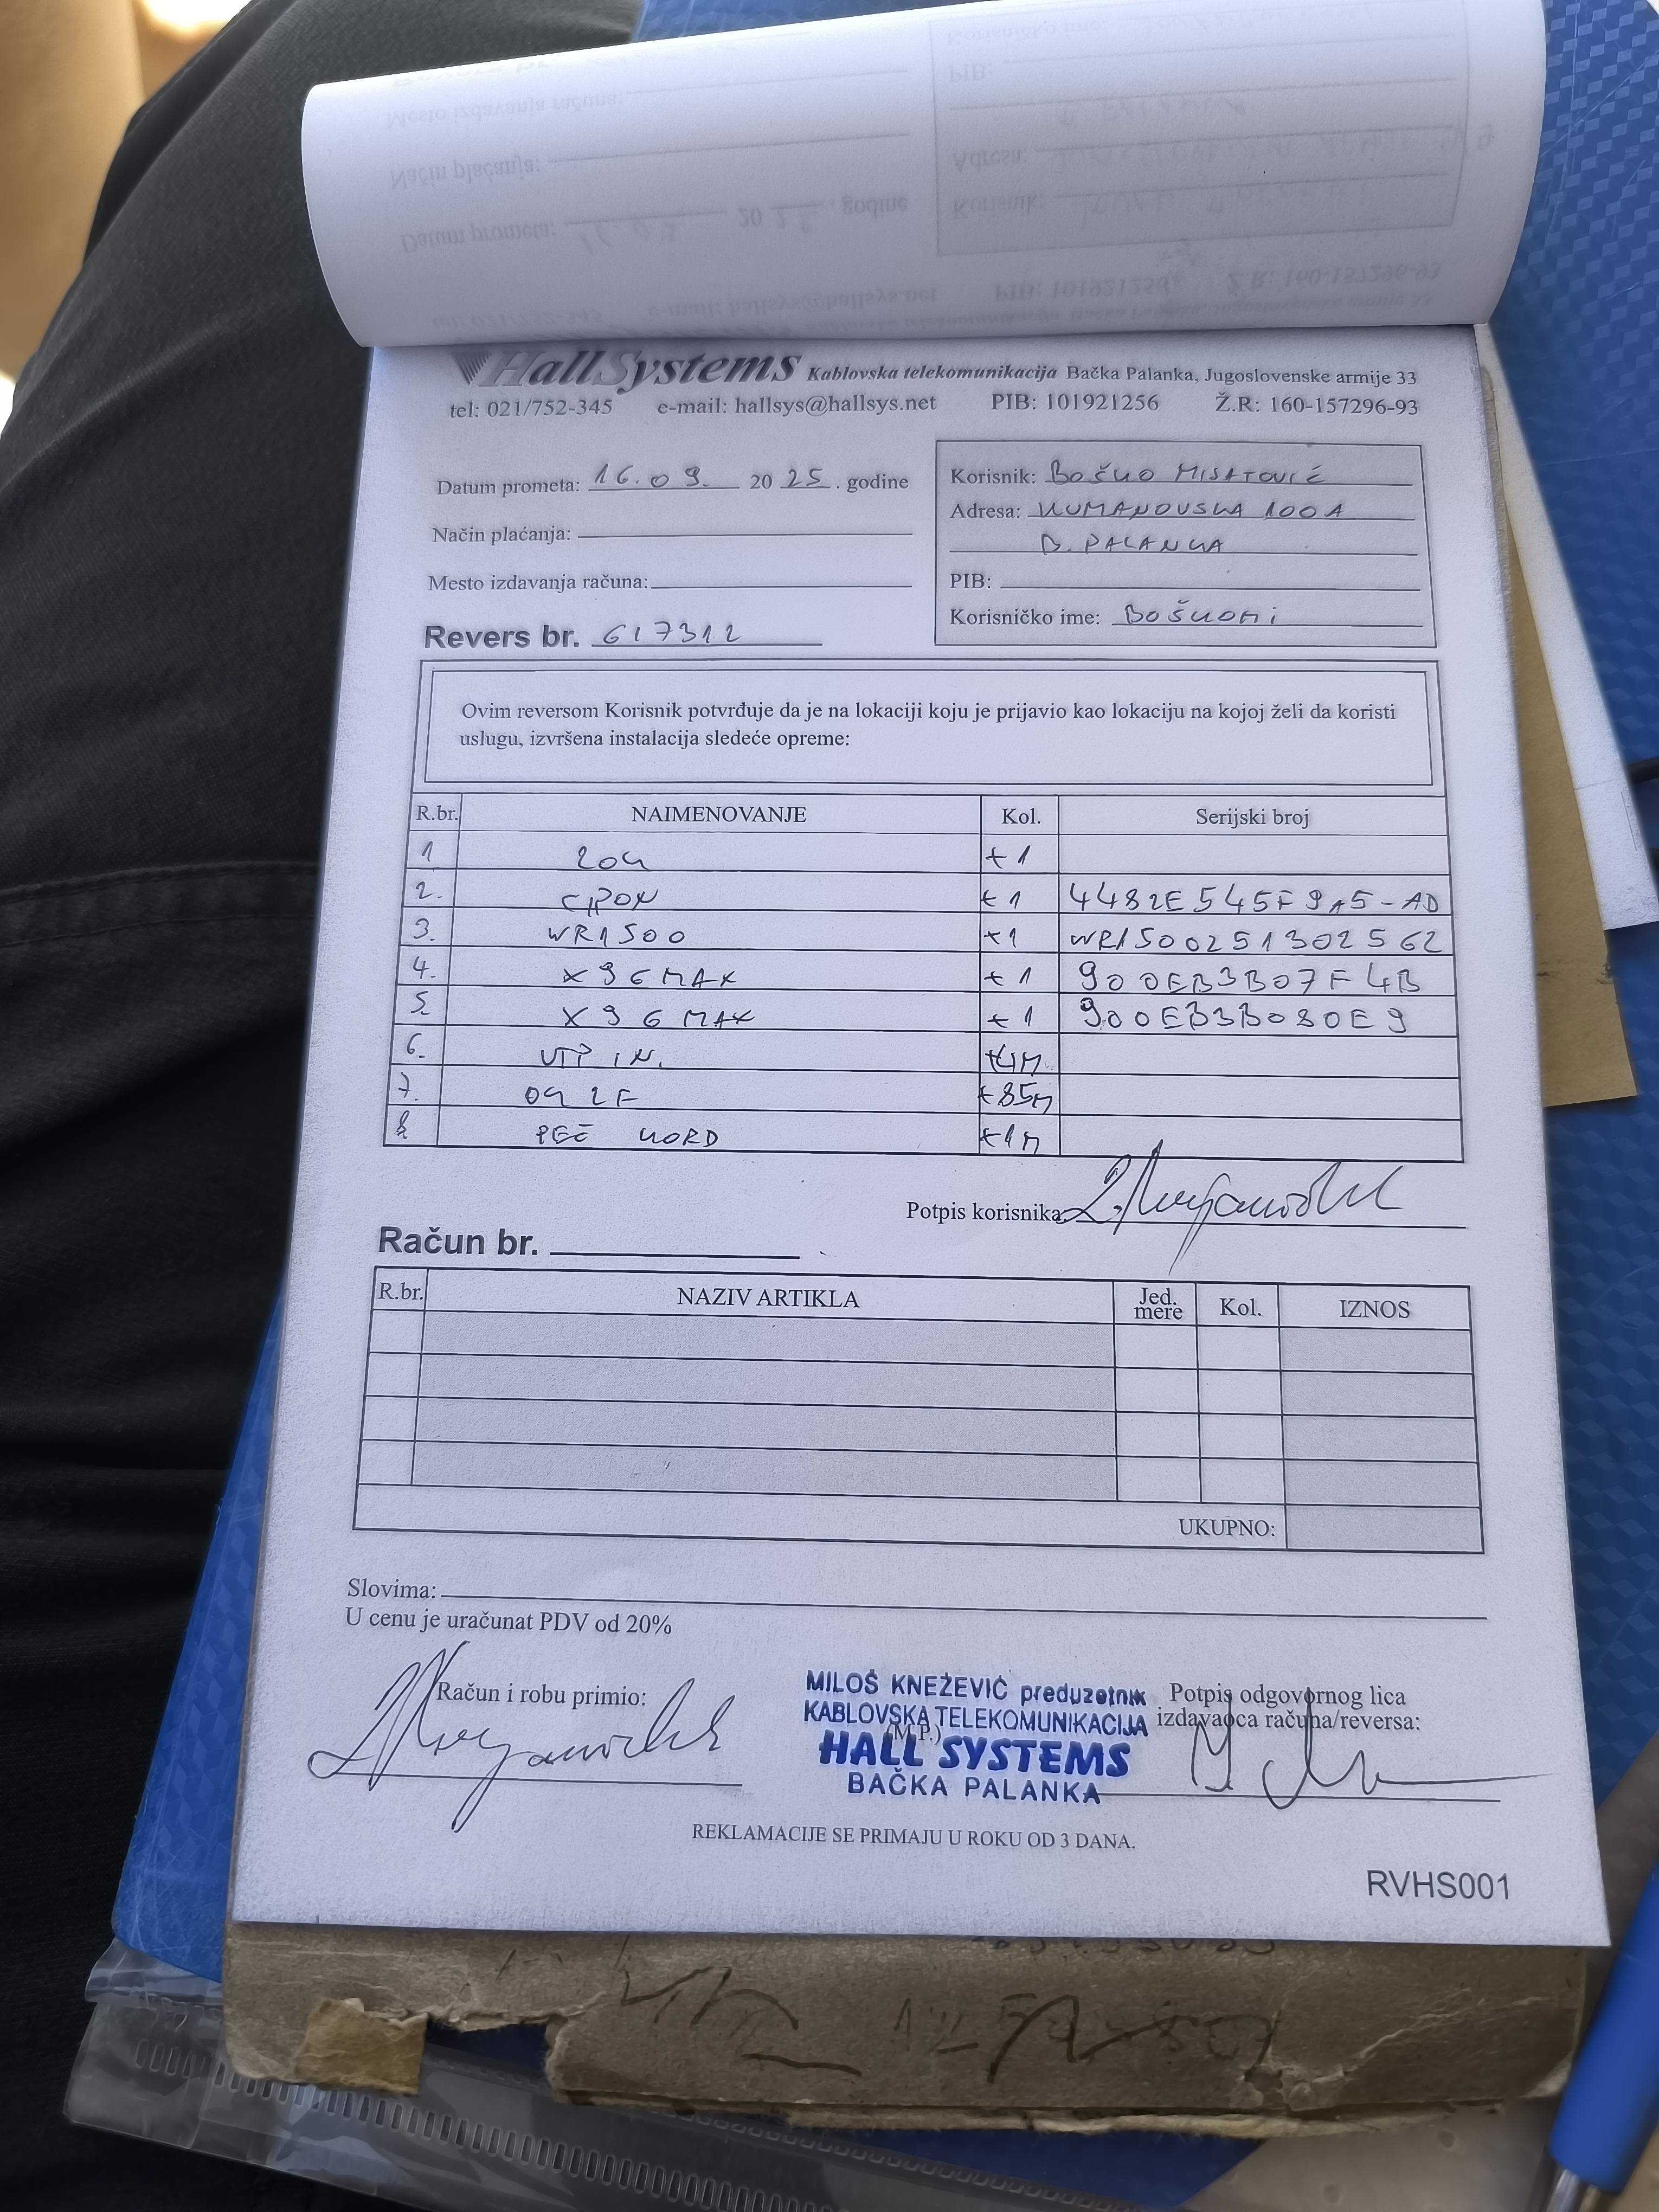 HallSystems Kablovska telekomunikacija Bačka Palanka, Jugoslovenske armije 33
tel: 021/752-345 e-mail: hallsys@hallsys.net PIB: 101921256 Ž.R: 160-157296-93
Datum prometa: 16.09. 2025. godine
Način plaćanja:
Mesto izdavanja računa:
Revers br. 617312
Korisnik: BOŠKO MISATOVIĆ
Adresa: KUMANOVSKA 100A
B. PALANKA
PIB:
Korisničko ime: BOŠKOMI
Ovim reversom Korisnik potvrđuje da je na lokaciji koju je prijavio kao lokaciju na kojoj želi da koristi
uslugu, izvršena instalacija sledeće opreme:
R.br. NAIMENOVANJE Kol. Serijski broj
1 ZOK +1
2. GPON +1 4482E545F9A5-AD
3. WR1500 +1 WR1500251302562
4. X96MAX +1 900EB3B07F4B
5. X96MAX +1 900EB3B080E9
6. UTP IN.
7. OK 2F +85M
8 PEČ KORD +1M
Potpis korisnika:
Račun br.
R.br. NAZIV ARTIKLA Jed. mere Kol. IZNOS
UKUPNO:
Slovima:
U cenu je uračunat PDV od 20%
Račun i robu primio:
MILOŠ KNEŽEVIĆ preduzetnik
KABLOVSKA TELEKOMUNIKACIJA
(M.P.)
HALL SYSTEMS
BAČKA PALANKA
Potpis odgovornog lica
izdavaoca računa/reversa:
REKLAMACIJE SE PRIMAJU U ROKU OD 3 DANA.
RVHS001